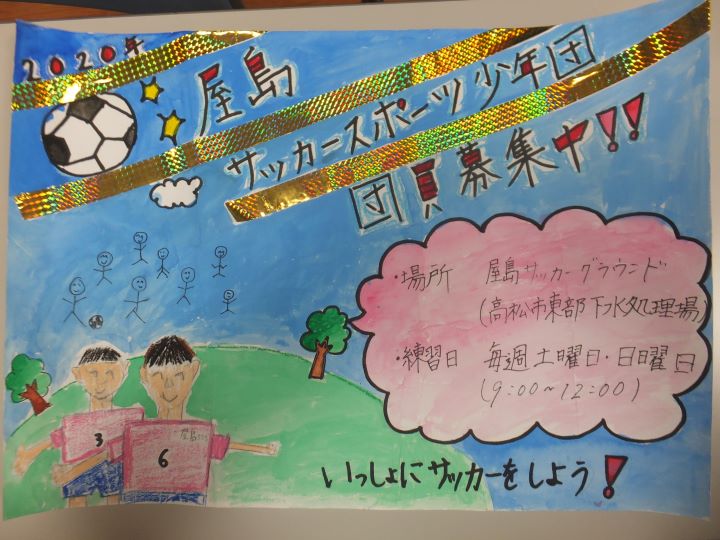 2020年
屋島
サッカースポーツ少年団
団員募集中!!
・場所 屋島サッカーグラウンド
(高松市東部下水処理場)
・練習日 毎週土曜日・日曜日
(9:00~12:00)
3
6
いっしょにサッカーをしよう!